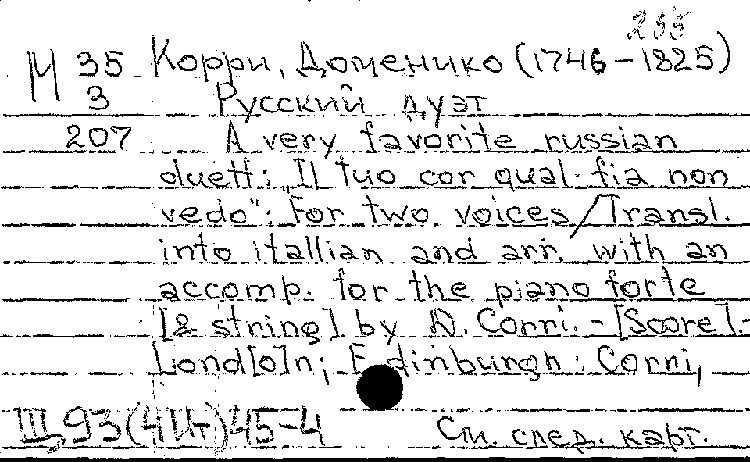 255
М 35 Корри, Доменико (1746-1825)
3 Русский дуэт
207 A very favorite russian
duett: „Il tuo cor qual fia non
vedo": For two voices / Transl.
into itallian and arr. with an
accomp. for the piano forte
[& string] by D. Corri. - [Score]. -
Lond[o]n; Edinburgh: Corri,
III, 93(4Ит)45-4 См. след. карт.